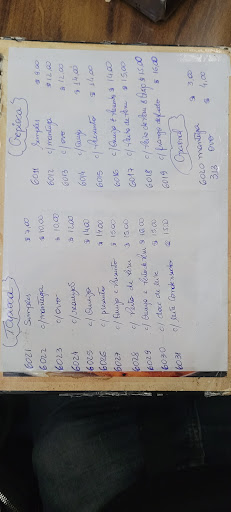 (Tapioca)
6021 Simples $ 8,00
6022 c/ manteiga $ 10,00
6023 c/ ovo $ 10,00
6024 c/ $ 12,00
6025 c/ frango $ 14,00
6026 c/ presunto $ 14,00
6027 c/ frango e presunto $ 15,00
6028 c/ Peito de Peru $ 15,00
6029 c/ frango e Peito de Peru $ 16,00
6030 c/ doce de leite $ 15,00
6031 c/ leite condensado $ 15,00
6011 Simples $ 9,00
6012 c/ manteiga $ 12,00
6013 c/ ovo $ 12,00
6014 c/ frango $ 14,00
6015 c/ Presunto $ 14,00
6016 c/ frango e Presunto $ 14,00
6017 c/ Peito de Peru $ 15,00
6018 c/ Peito de Peru $ 15,00
6019 c/ frango $ 16,00
6020 manteiga $ 3,00
313 Ovo $ 4,00